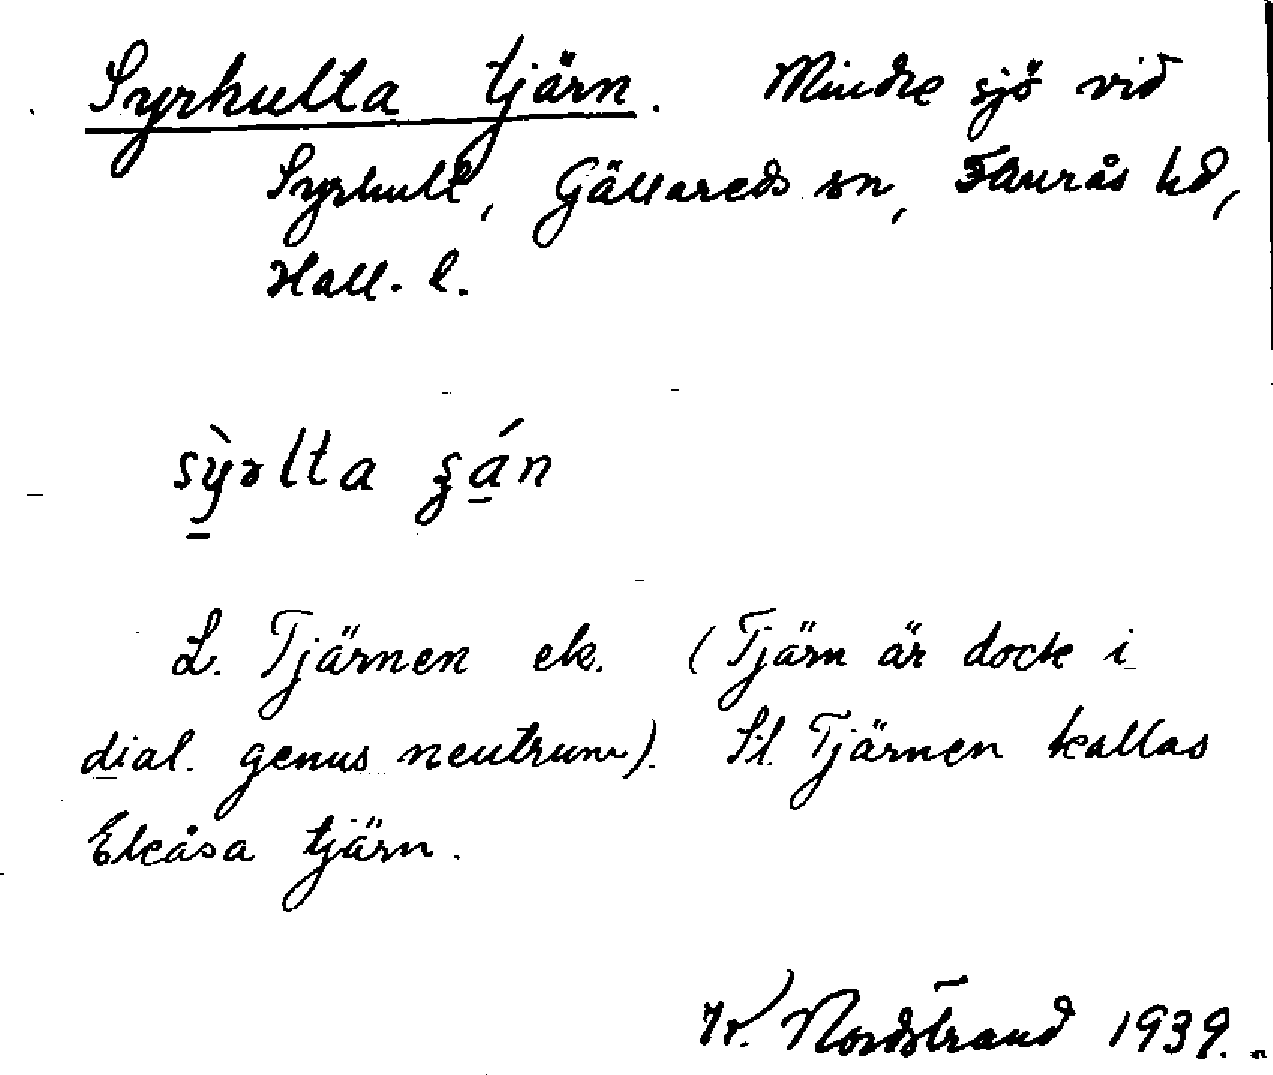 Syrhulta tjärn. Mindre sjö vid
Syrhult, Gällareds sn, Faurås hd,
Hall. l.
sỳrlta ʂán
L. Tjärnen ek. (Tjärn är dock i
dial. genus neutrum). St. Tjärnen kallas
Ekåsa tjärn.
K. Nordstrand 1939.